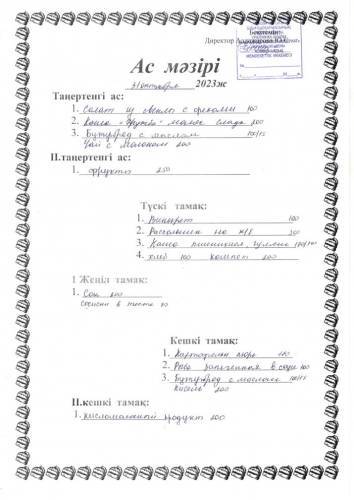 Бекітемін
Директор
Ас мәзірі
31 октября 2023ж
Таңертенгі ас:
1. Салат из свеклы с орехами 100
2. Каша "Дружба" молоч сладк 200
3. Бутерброд с маслом 100/15
Чай с молоком 200
II.таңертенгі ас:
1. фрукты 250
Түскі тамақ:
1. Винегрет 100
2. Рассольник на к/б
3. Каша пшеничная, гуляш
4. хлеб 100 компот 200
1 Жеңіл тамақ:
1. Сок 200
сосиски в тесте 80
Кешкі тамақ:
1. Картофельн пюре
2. Рыба запеченная в соусе 100
3. Бутерброд с маслом 100/15
кисель 200
II.кешкі тамақ:
1. кисломолочный продукт 200